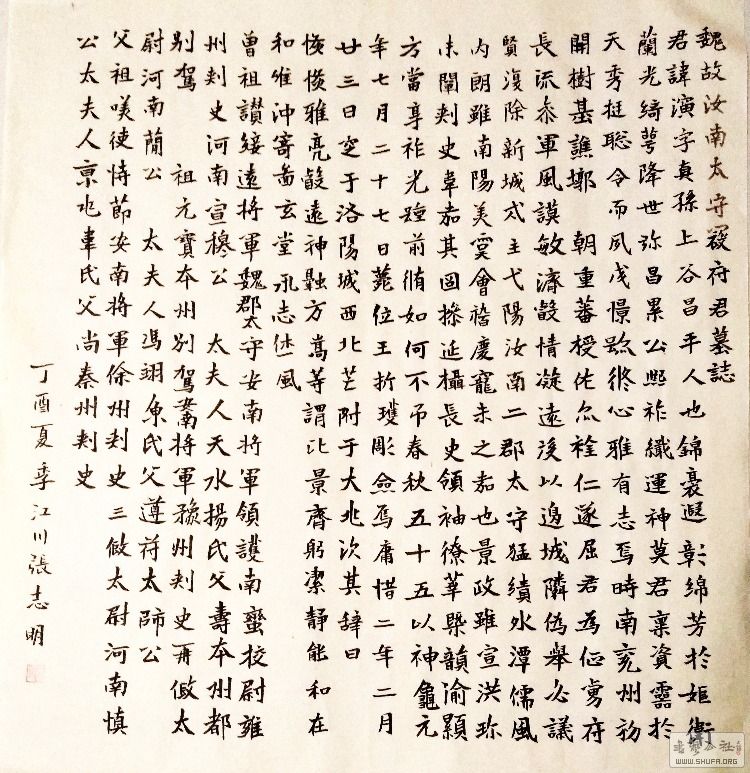 魏故汝南太守寇府君墓誌
君諱演字真孫上谷昌平人也錦裹遐彰綿芳於姬衛
蘭光綺萼降世弥昌累公熙祚纖運神莫君稟資靈於
天秀挺聡令而夙茂憬跡終心雅有志焉時南兖州初
開樹基譙鄴朝重蕃授佐佘詮仁遂屈君為征虜府
長流叅軍風謨敏濟毅情凝遠後以邊城隣偽舉必議
賢復除新城戍主弋陽汝南二郡太守猛績水潭儒風
内朗雖南陽美䨱會稽慶寵未之嘉也景政雖宣洪珎
未闡刾史韋嘉其固㨿延攝長史領袖僚華槩韻渝顯
方當享祚光踵前脩如何不吊春秋五十五以神龜元
年七月二十七日薨位王折璞彫僉焉庸惜二年二月
廿三日窆于洛陽城西北芒附于大兆次其辭曰
悛悛雅亮毅遠神融方嵩等謂比景齊躬潔静能和在
和唯沖寄啚玄堂永志徃風
曾祖讃綏遠将軍魏郡太守安南将軍領護南蠻校尉雍
州刾史河南宣穆公 太夫人天水揚氏父壽本州都
別駕 祖元寶本州別駕安南将軍豫州刾史再倣太
尉河南蕳公 太夫人馮翊原氏父遵苻太師公
父祖嘆使恃節安南将軍徐州刾史三倣太尉河南慎
公太夫人京兆韋氏父尚秦州刾史
丁酉夏季江川張志明
書艺公社
WWW.SHUFA.ORG